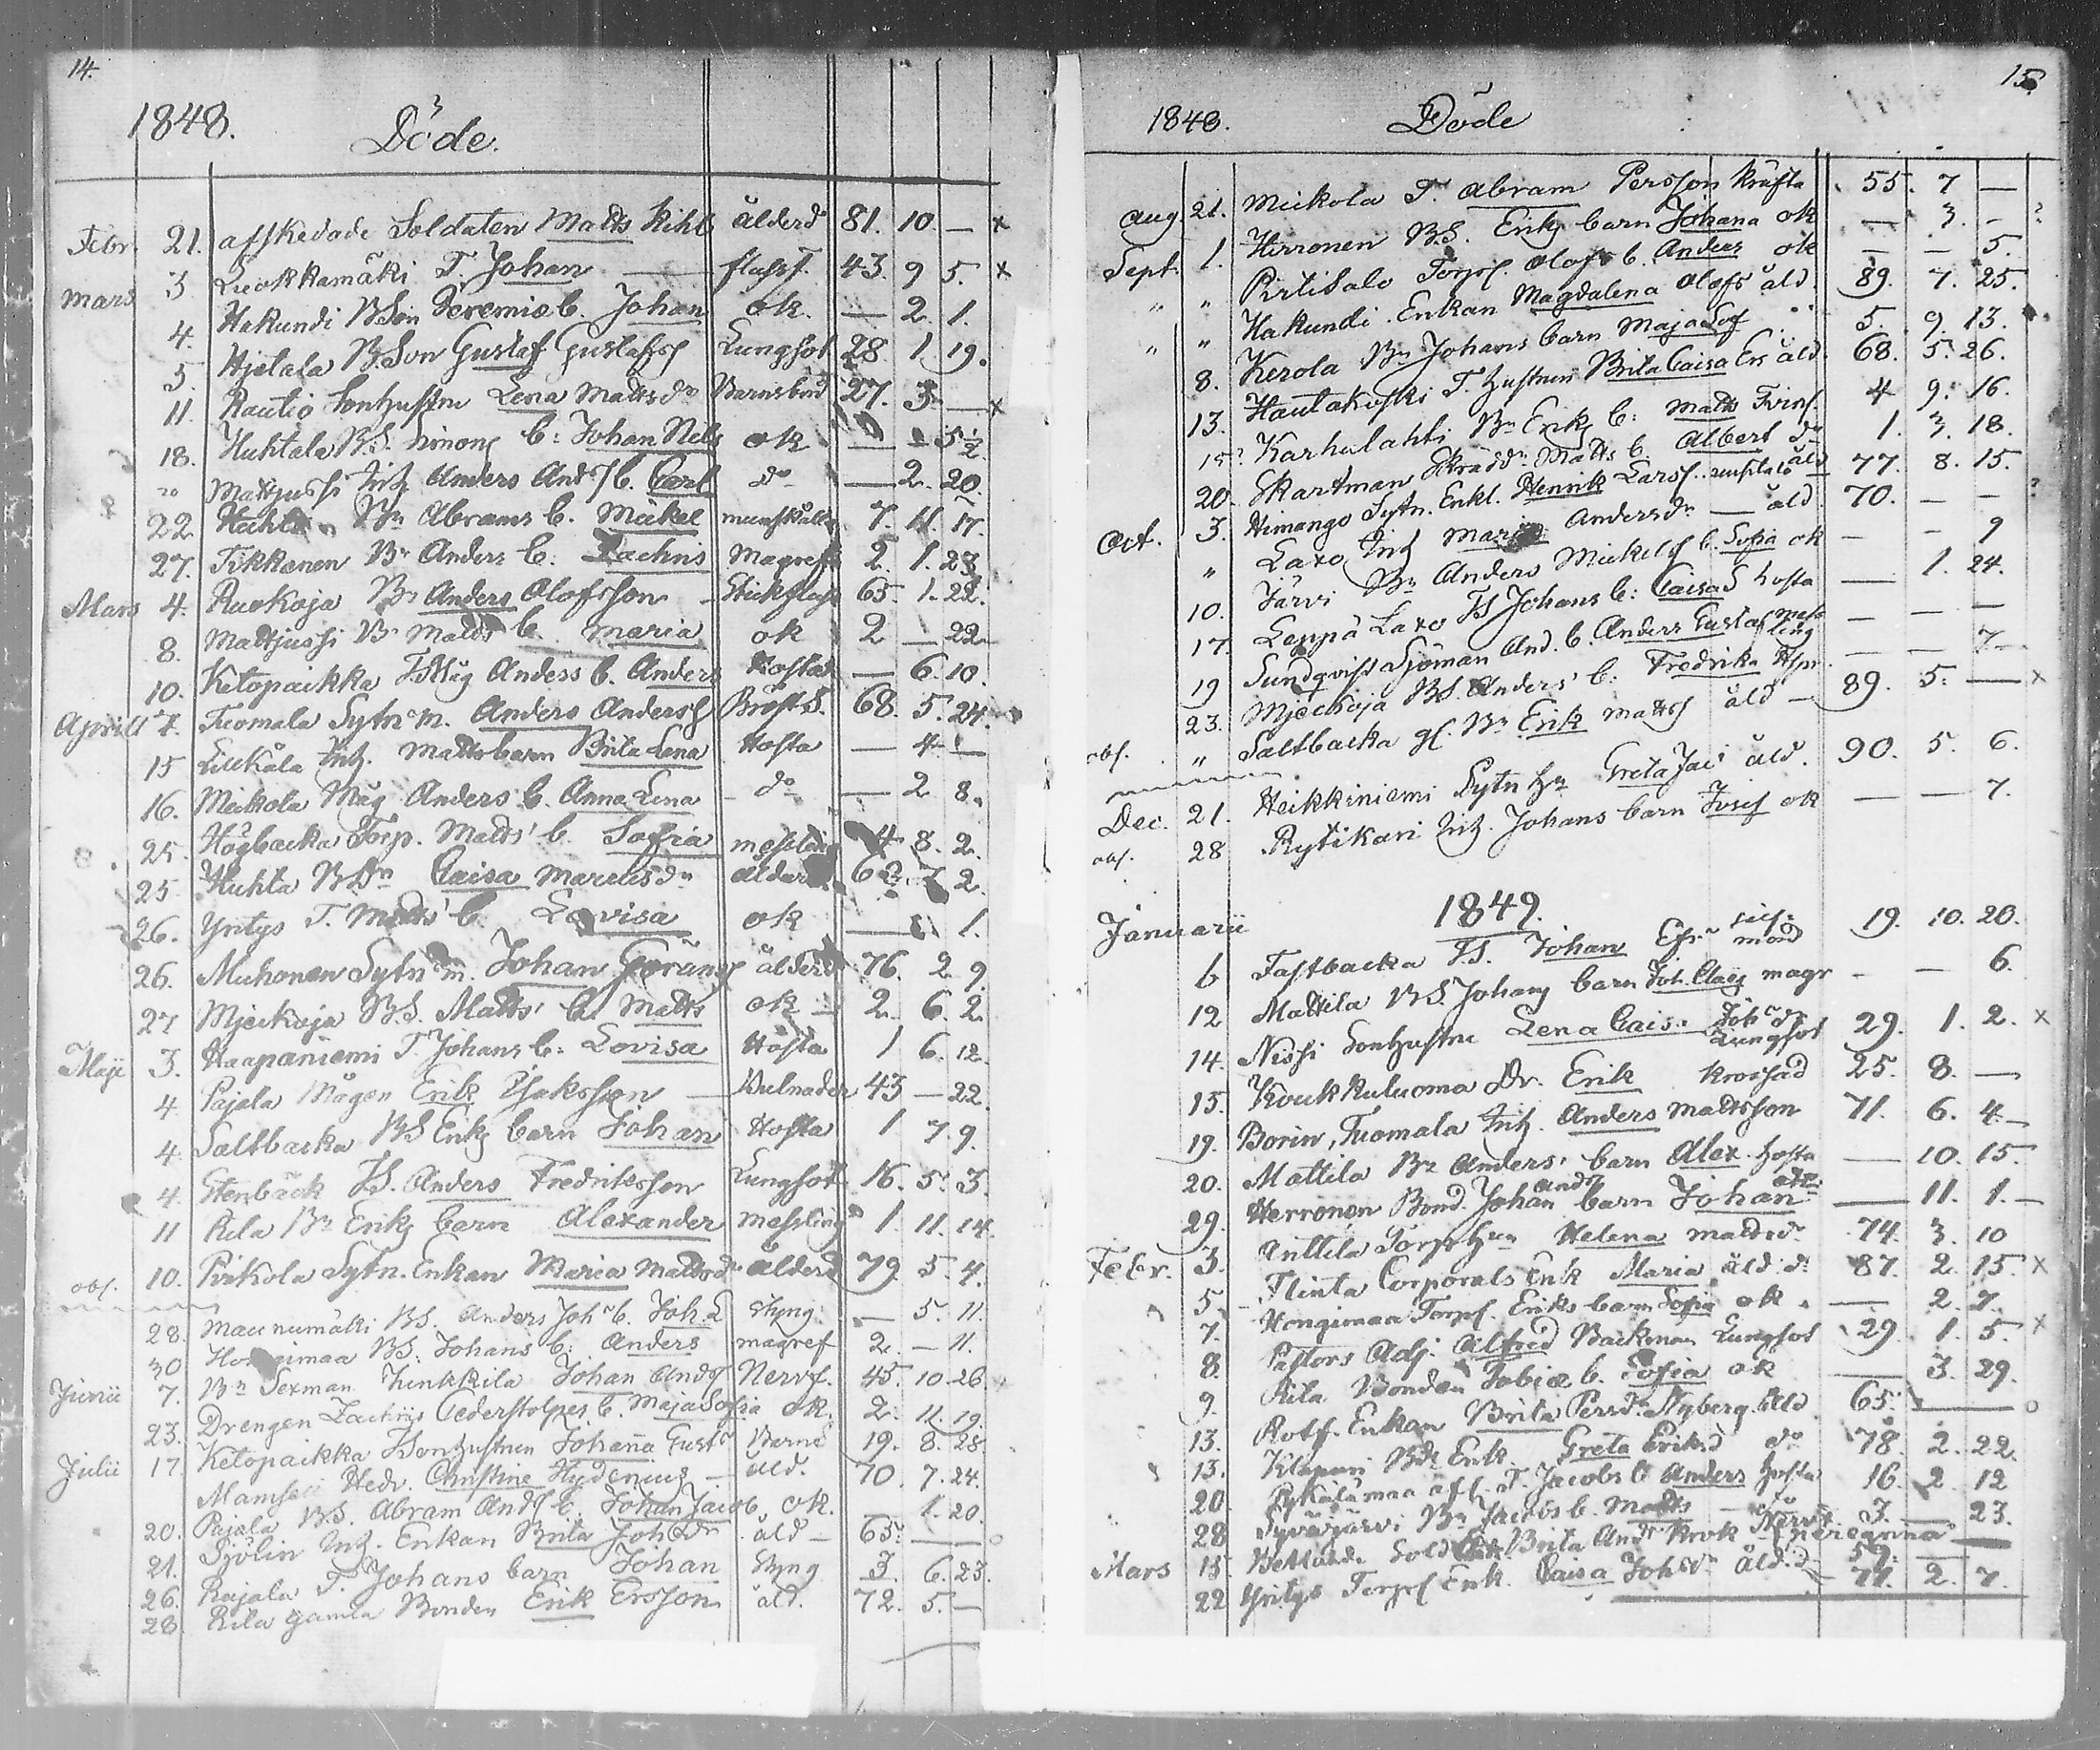 14.
1848. Döde.
Febr. 21. afskedade Soldaten Matts Kihl ålderd 81. 10. — x
Mars 3 Luokkamäki T. Johan — flussf. 43. 9 5. x
4. Hakundi BSon Jeremiæ b. Johan ok. — 2 1.
5. Hjelala B.Son Gustaf Gustafss Lungsot 28 1 19.
11. Rautio Sonhustru Lena Mattsdr Barnsbörd 27. 3 — x
18. Huhtala B.S. Simons b: Johan Nels ok — — 5½
Mattjussi Inh Anders Ands b. Carl do — 2. 20.
22. Huhta Bn Abrams b. Mickel 7. 11. 17.
27. Tikkanen Bn Anders b: Zachris Magref 2. 1. 23
Mars 4. Ruokoja Bn Anders Olofsson Stickfluss 65 1. 22.
8. Mattjussi Bn Matts b. Maria ok 2 — 22
10. Ketopaikka T. Måg Anders b. Anders Hosta — 6. 10.
Aprill 7. Tuomala Sytn.m. Anders Anderss Bröst S. 68. 5. 24.
15 Liukala Inh. Matts barn Brita Lena Hosta — 4 —
16. Meikola Måg Anders b. Anna Lena do — 2 8.
25. Högbacka Torp. Matts' b. Sofia messling 4 8. 2.
25. Huhta B.Dn Caisa Marcusdr ålderd 2.
26. Yritys T. Matts' b. Lovisa ok — 1.
26. Muhonen Sytn m. Johan Göranss ålderd 76. 2. 9.
27 Mjeckoja B.S. Matts' b. Matts ok 2. 6. 2
Maji 3. Haapaniemi T. Johans b: Lovisa Hosta 1 6. 12.
4. Pajala Mågen Erik Isaksson — Bulnader 43 — 22.
4. Saltbacka BS Eriks barn Johan Hosta 1 7. 9.
4. Stenbäck T.S. Anders Fredriksson Lungsot 16. 5. 3.
11 Rila Bn Eriks barn Alexander messling 1. 11. 14.
obs. 10. Pirkola Sytn. Enkan Maria Mattsdr ålderd 79. 5. 4.
28. Maunumäki BS. Anders Johs b. Joh. E Styng — 5. 11.
30 Hongimaa BS. Johans b: Anders magref 2. — 11.
Junii 7. Bn Sexman Junkkila Johan Ands Nervf. 45. 10. 26
23. Drengen Zachris Cederstolpes b. Maja Sofia ok. 2. 11. 19.
Julii 17. Ketopaikka T.Sonhustrun Johanna Gustdr Barns 19. 8. 28.
Mamsell Hedv. Christine Hydenius — åld. 70. 7. 24.
20. Pajala B.S. Abram Ands b. Johan Jacob ok. — 1. 20.
21. Sjölin Inh. Enkan Brita Johsdr åld — 65. — o
26. Rajala T. Johans barn Johan Styng 3. 6. 23.
28 Rila gamla Bonden Erik Ersson åld. 72. 5. —
15
1848. Döde
Aug. 21. Meikola T. Abram Persson kräfta 55. 7 —
Sept. 1. Herronen B.S. Eriks barn Johana ok — 3. — ?
" " Pirtisalo Torps. Olofs b. Anders ok — — 5.
" " Hakundi Enkan Magdalena Olofs åld 89. 7. 25.
8. Kerola Bn Johans barn Maja Sof 5. 9. 13.
13. Hautakoski T. hustrun Brita Caisa Ers åld. 68. 5. 26.
15? Karhulahti Bn Eriks b: Matts Tvins. 4 9. 16.
20. Skartman Skrädd. Matts b. Albert do 1. 3. 18.
Oct. 3. Himango Sytn. Enkl. Henrik Larss. åld 77. 8. 15.
" Laxo Inh Maria Andersdr — åld 70. — — ?
10. Järvi Bn Anders Mickels b. Sofia ok — — 9
17. Leppä Laxo TS Johans b: Caisa S hosta — 1. 24.
19 Sundqvist Sjöman And. b. Anders Gustaf messling — — —
23. Mjeckoja BS Anders' b: Fredrika — — 7
obs. " Saltbacka gl. Bn Erik Mattss åld — 89. 5. — x
Dec. 21. Heikkiniemi Sytn hu Greta Jac åld. 90. 5. 6.
obs. 28 Rytikari Inh. Johans barn Josef ok — — 7.
1849.
Januarii
6 Fastbacka T.S. Johan Efr. mord 19. 10. 20.
12 Mattila BS. Johans barn Joh. Claes magr — — 6.
14. Nissi Sonhustru Lena Caisa Johdr Lungsot 29. 1. 2. x
15. Koukkuluoma Dr. Erik krossad 25. 8. —
19. Borin, Tuomala Inh. Anders Mattsson 71. 6. 4.
20. Mattila Bn Anders' barn Alex. hosta — 10. 15.
29. Herronen Bond. Johan Ands barn Johan — 11. 1. —
Febr. 3. Anttila Torps hu Helena Mattsdr 74. 3. 10
5 Flinta Corporals Enk Maria åld. d. 87. 2. 15. x
7. Hongimaa Torps. Eriks barn Sofia ok — 2. 7.
8. Pastors Adj. Alfred Backman Lungsot 29. 1. 5. x
9. Rila Bonden Tobiæ b. Sofia ok — 3. 29.
13. Rotf. Enkan Brita Persdr Nyberg åld 65. — o
13. Klapuri Bds Enk. Greta Eriksd do 78. 2. 22
20 Pykälämaa T. Jacobs b. Anders hosta 16. 2 12
28 Syväjärvi Bn Jacobs b. Matts Nervf. 3. — 23.
Mars 15. Sold Brita And krok 59. —
22 Yritys Torps Enk. Caisa Johsdr åld. 77. 2. 7.